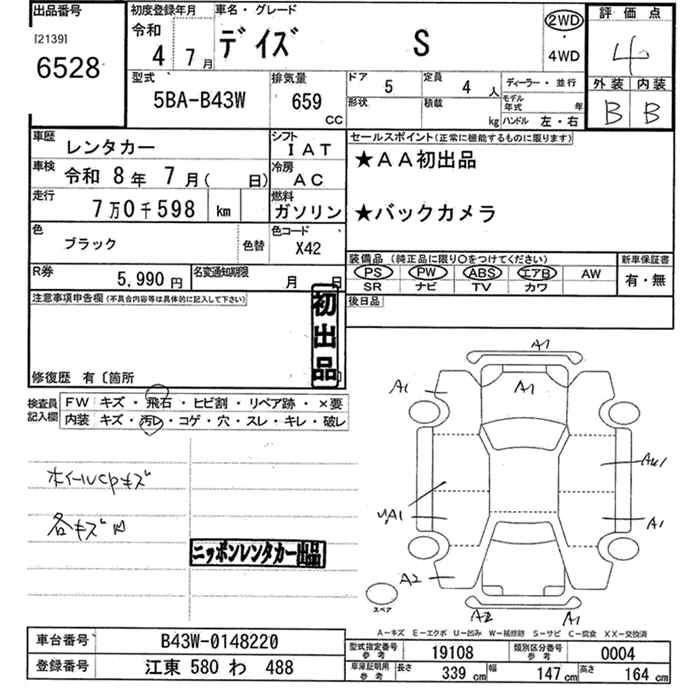 出品番号
[2139]
6528
初度登録年月
令和
4 7月
車名・グレード
デイズ S
2WD
・
4WD
評価点
4
外装 内装
B B
型式
5BA-B43W
排気量
659
CC
ドア 5
定員 4 人
形状
積載 kg
ディーラー・並行
モデル年式 年
ハンドル 左・右
車歴 レンタカー
シフト IAT
車検 令和 8年 7月( 日)
冷房 AC
走行 7万0千598 km
燃料 ガソリン
色 ブラック
色替
色コード X42
R券 5,990円
名変通知期限 月 日
セールスポイント(正常に機能するものに限ります)
★AA初出品
★バックカメラ
装備品(純正品に限り○をつけてください)
PS PW ABS エアB AW
SR ナビ TV カワ
新車保証書
有・無
後日品
注意事項申告欄(不具合内容等は具体的に記入して下さい)
初出品
修復歴 有〔箇所 〕
検査員記入欄
FW キズ・飛石・ヒビ割・リペア跡・×要
内装 キズ・汚レ・コゲ・穴・スレ・キレ・破レ
各キズ
ニッポンレンタカー出品
A1
A1
A1
A1
A2
A2
A1
スペア
A-キズ E-エクボ U-凹み W-補修跡 S-サビ C-腐食 XX-交換済
車台番号 B43W-0148220
登録番号 江東 580 わ 488
型式指定番号 参考 19108
類別区分番号 参考 0004
車庫証明用 参考
長さ 339 cm
幅 147 cm
高さ 164 cm